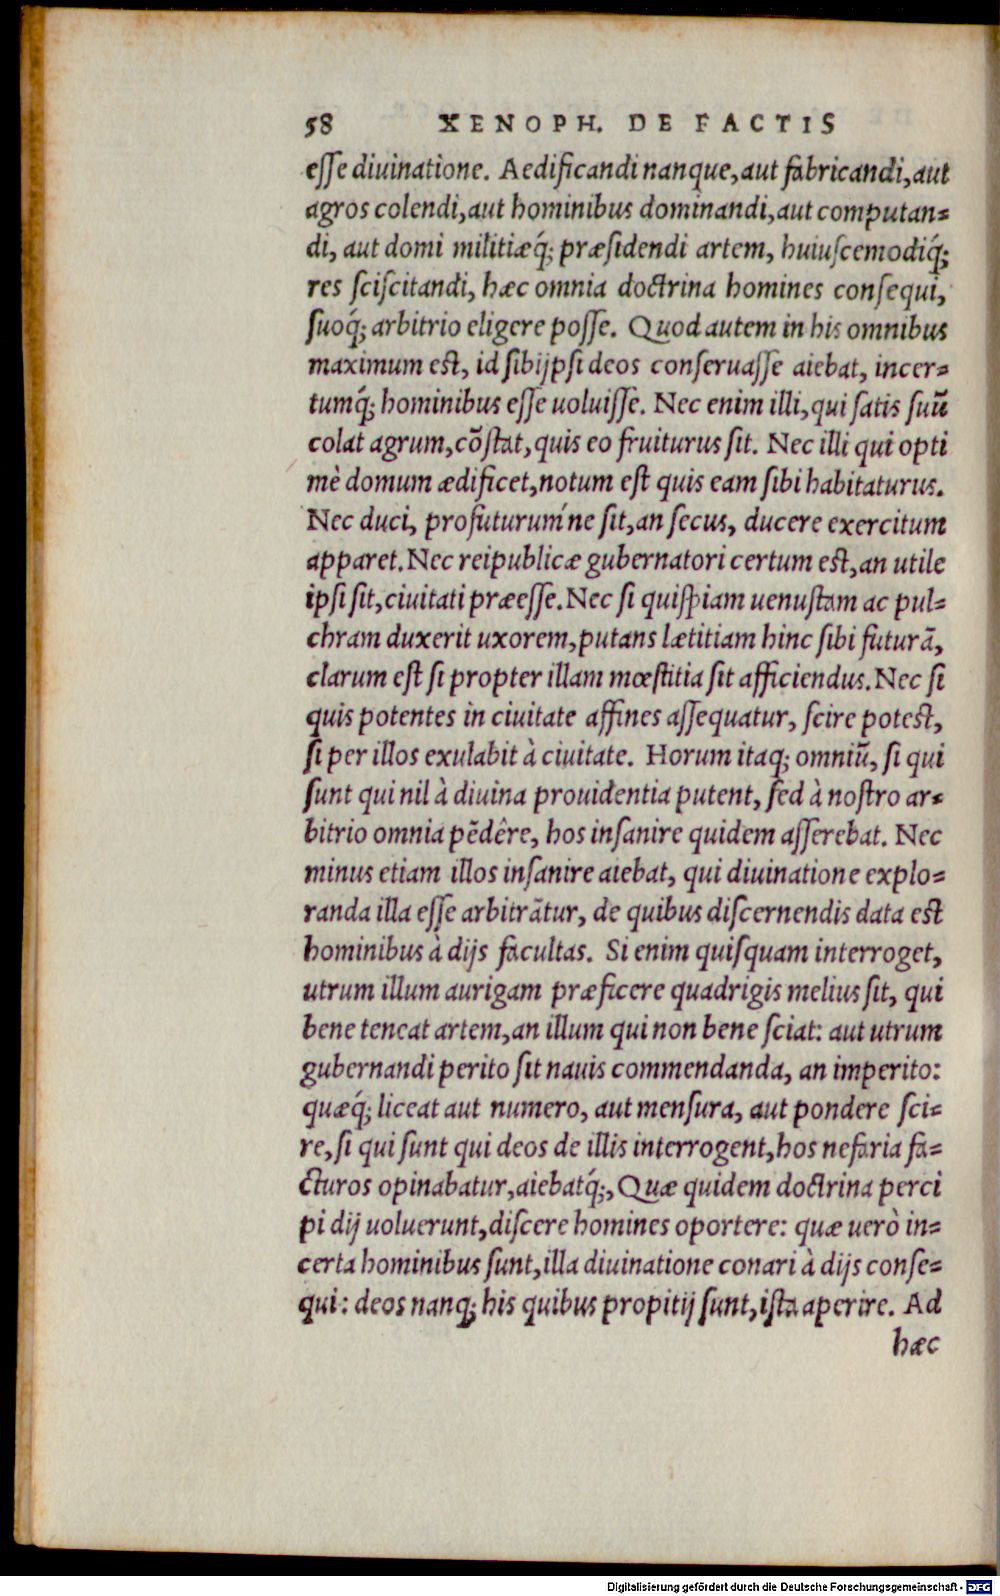 58 XENOPH. DE FACTIS
esse diuinatione. Aedificandi nanque, aut fabricandi, aut
agros colendi, aut hominibus dominandi, aut computan=
di, aut domi militiæq́; præsidendi artem, huiuscemodiq́;
res sciscitandi, hæc omnia doctrina homines consequi,
suoq́; arbitrio eligere posse. Quod autem in his omnibus
maximum est, id sibijpsi deos conseruasse aiebat, incer=
tumq́; hominibus esse uoluisse. Nec enim illi, qui satis suũ
colat agrum, cõstat, quis eo fruiturus sit. Nec illi qui opti
mè domum ædificet, notum est quis eam sibi habitaturus.
Nec duci, profuturum'ne sit, an secus, ducere exercitum
apparet. Nec reipublicæ gubernatori certum est, an utile
ipsi sit, ciuitati præesse. Nec si quispiam uenustam ac pul=
chram duxerit uxorem, putans lætitiam hinc sibi futurã,
clarum est si propter illam mœstitia sit afficiendus. Nec si
quis potentes in ciuitate affines assequatur, scire potest,
si per illos exulabit à ciuitate. Horum itaq; omniũ, si qui
sunt qui nil à diuina prouidentia putent, sed à nostro ar=
bitrio omnia pẽdêre, hos insanire quidem asserebat. Nec
minus etiam illos insanire aiebat, qui diuinatione explo=
randa illa esse arbitrãtur, de quibus discernendis data est
hominibus à dijs facultas. Si enim quisquam interroget,
utrum illum aurigam præficere quadrigis melius sit, qui
bene teneat artem, an illum qui non bene sciat: aut utrum
gubernandi perito sit nauis commendanda, an imperito:
quæq́; liceat aut numero, aut mensura, aut pondere sci=
re, si qui sunt qui deos de illis interrogent, hos nefaria fa=
cturos opinabatur, aiebatq́;, Quæ quidem doctrina perci
pi dij uoluerunt, discere homines oportere: quæ uerò in=
certa hominibus sunt, illa diuinatione conari à dijs conse=
qui: deos nanq; his quibus propitij sunt, ista aperire. Ad
hæc
Digitalisierung gefördert durch die Deutsche Forschungsgemeinschaft - DFG